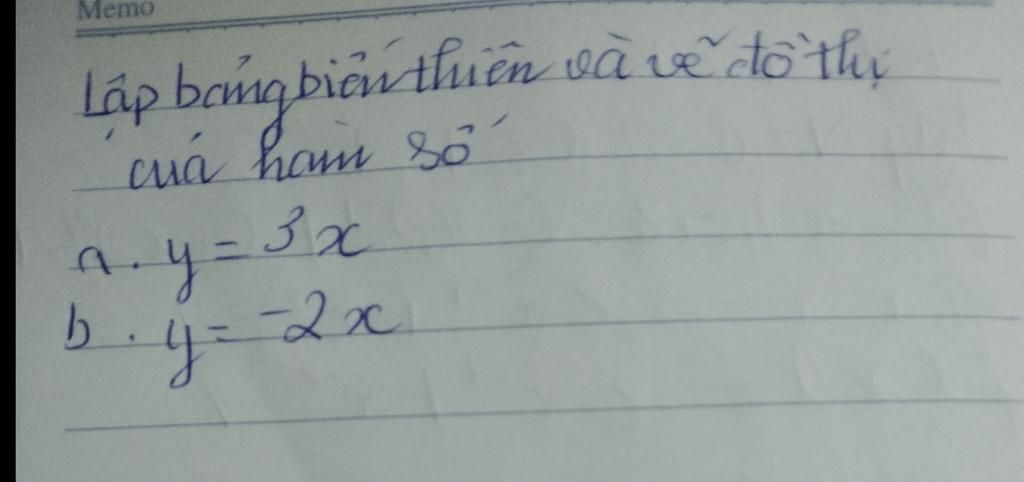 Memo
Lập bảng biến thiên và vẽ đồ thị
của hàm số
a. y = 3x
b. y = -2x